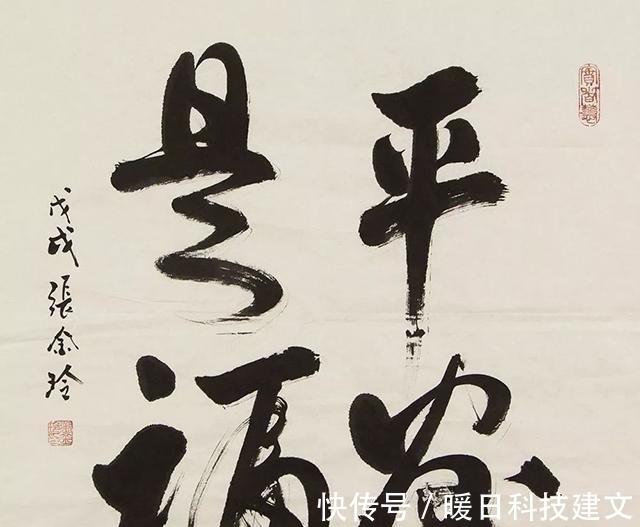 平安
是福
戊戌 張金玲
快传号 / 暖日科技建文